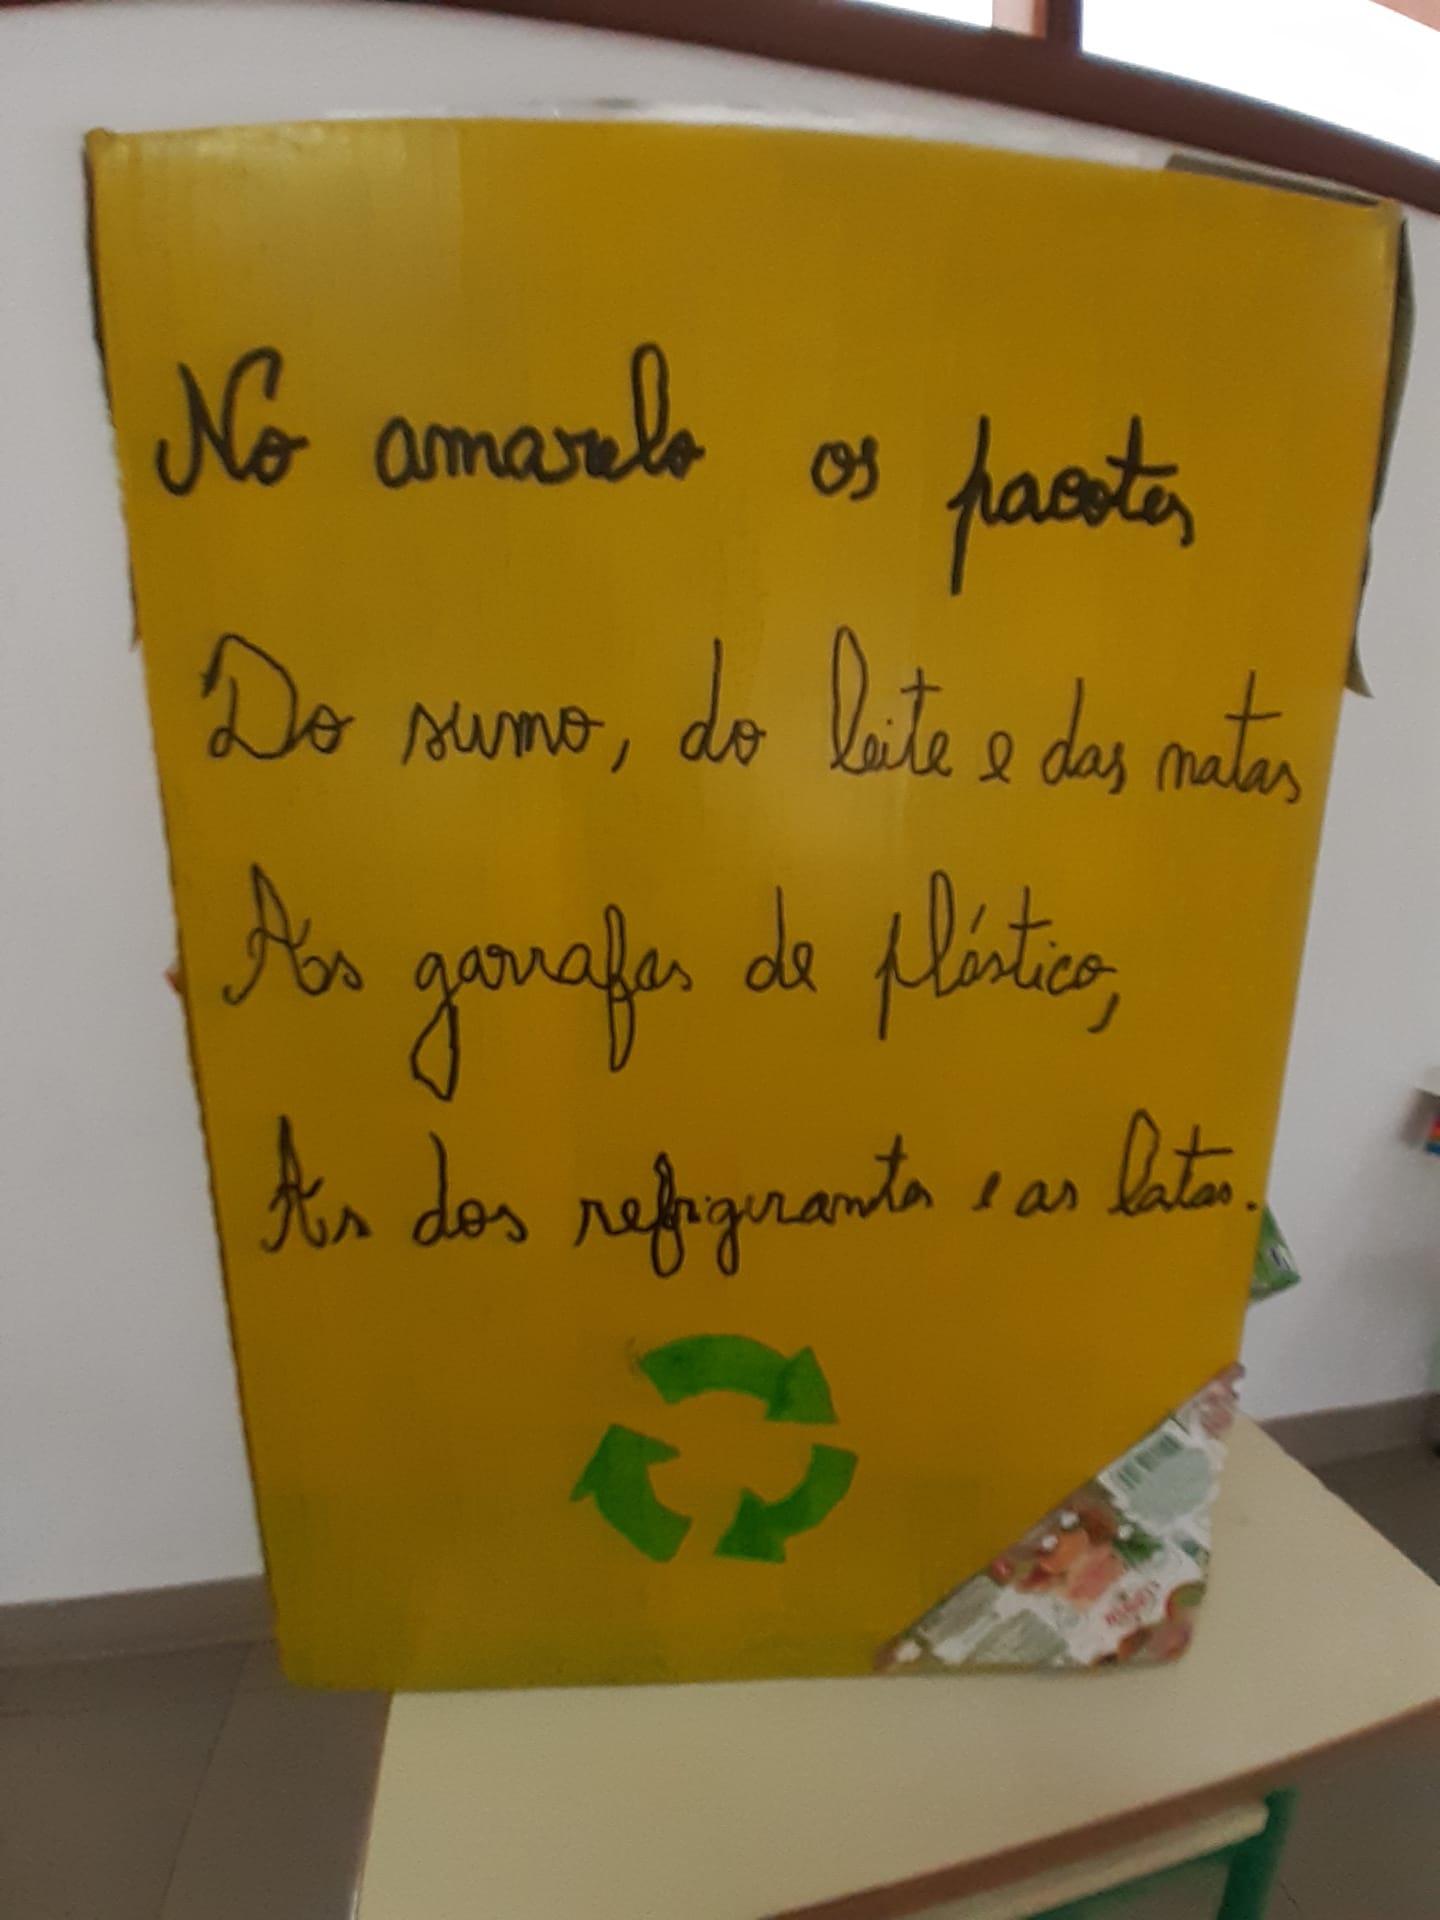 No amarelo os pacotes
Do sumo, do leite e das natas
As garrafas de plástico,
As dos refrigerantes e as latas.